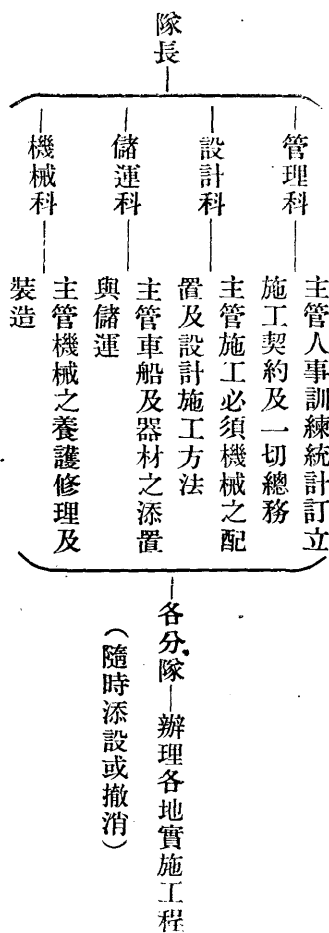 隊長
管理科
主管人事訓練統計訂立
施工契約及一切總務
設計科
主管施工必須機械之配
置及設計施工方法
儲運科
主管車船及器材之添置
與儲運
機械科
主管機械之養護修理及
裝造
各分隊—辦理各地實施工程
（隨時添設或撤消）